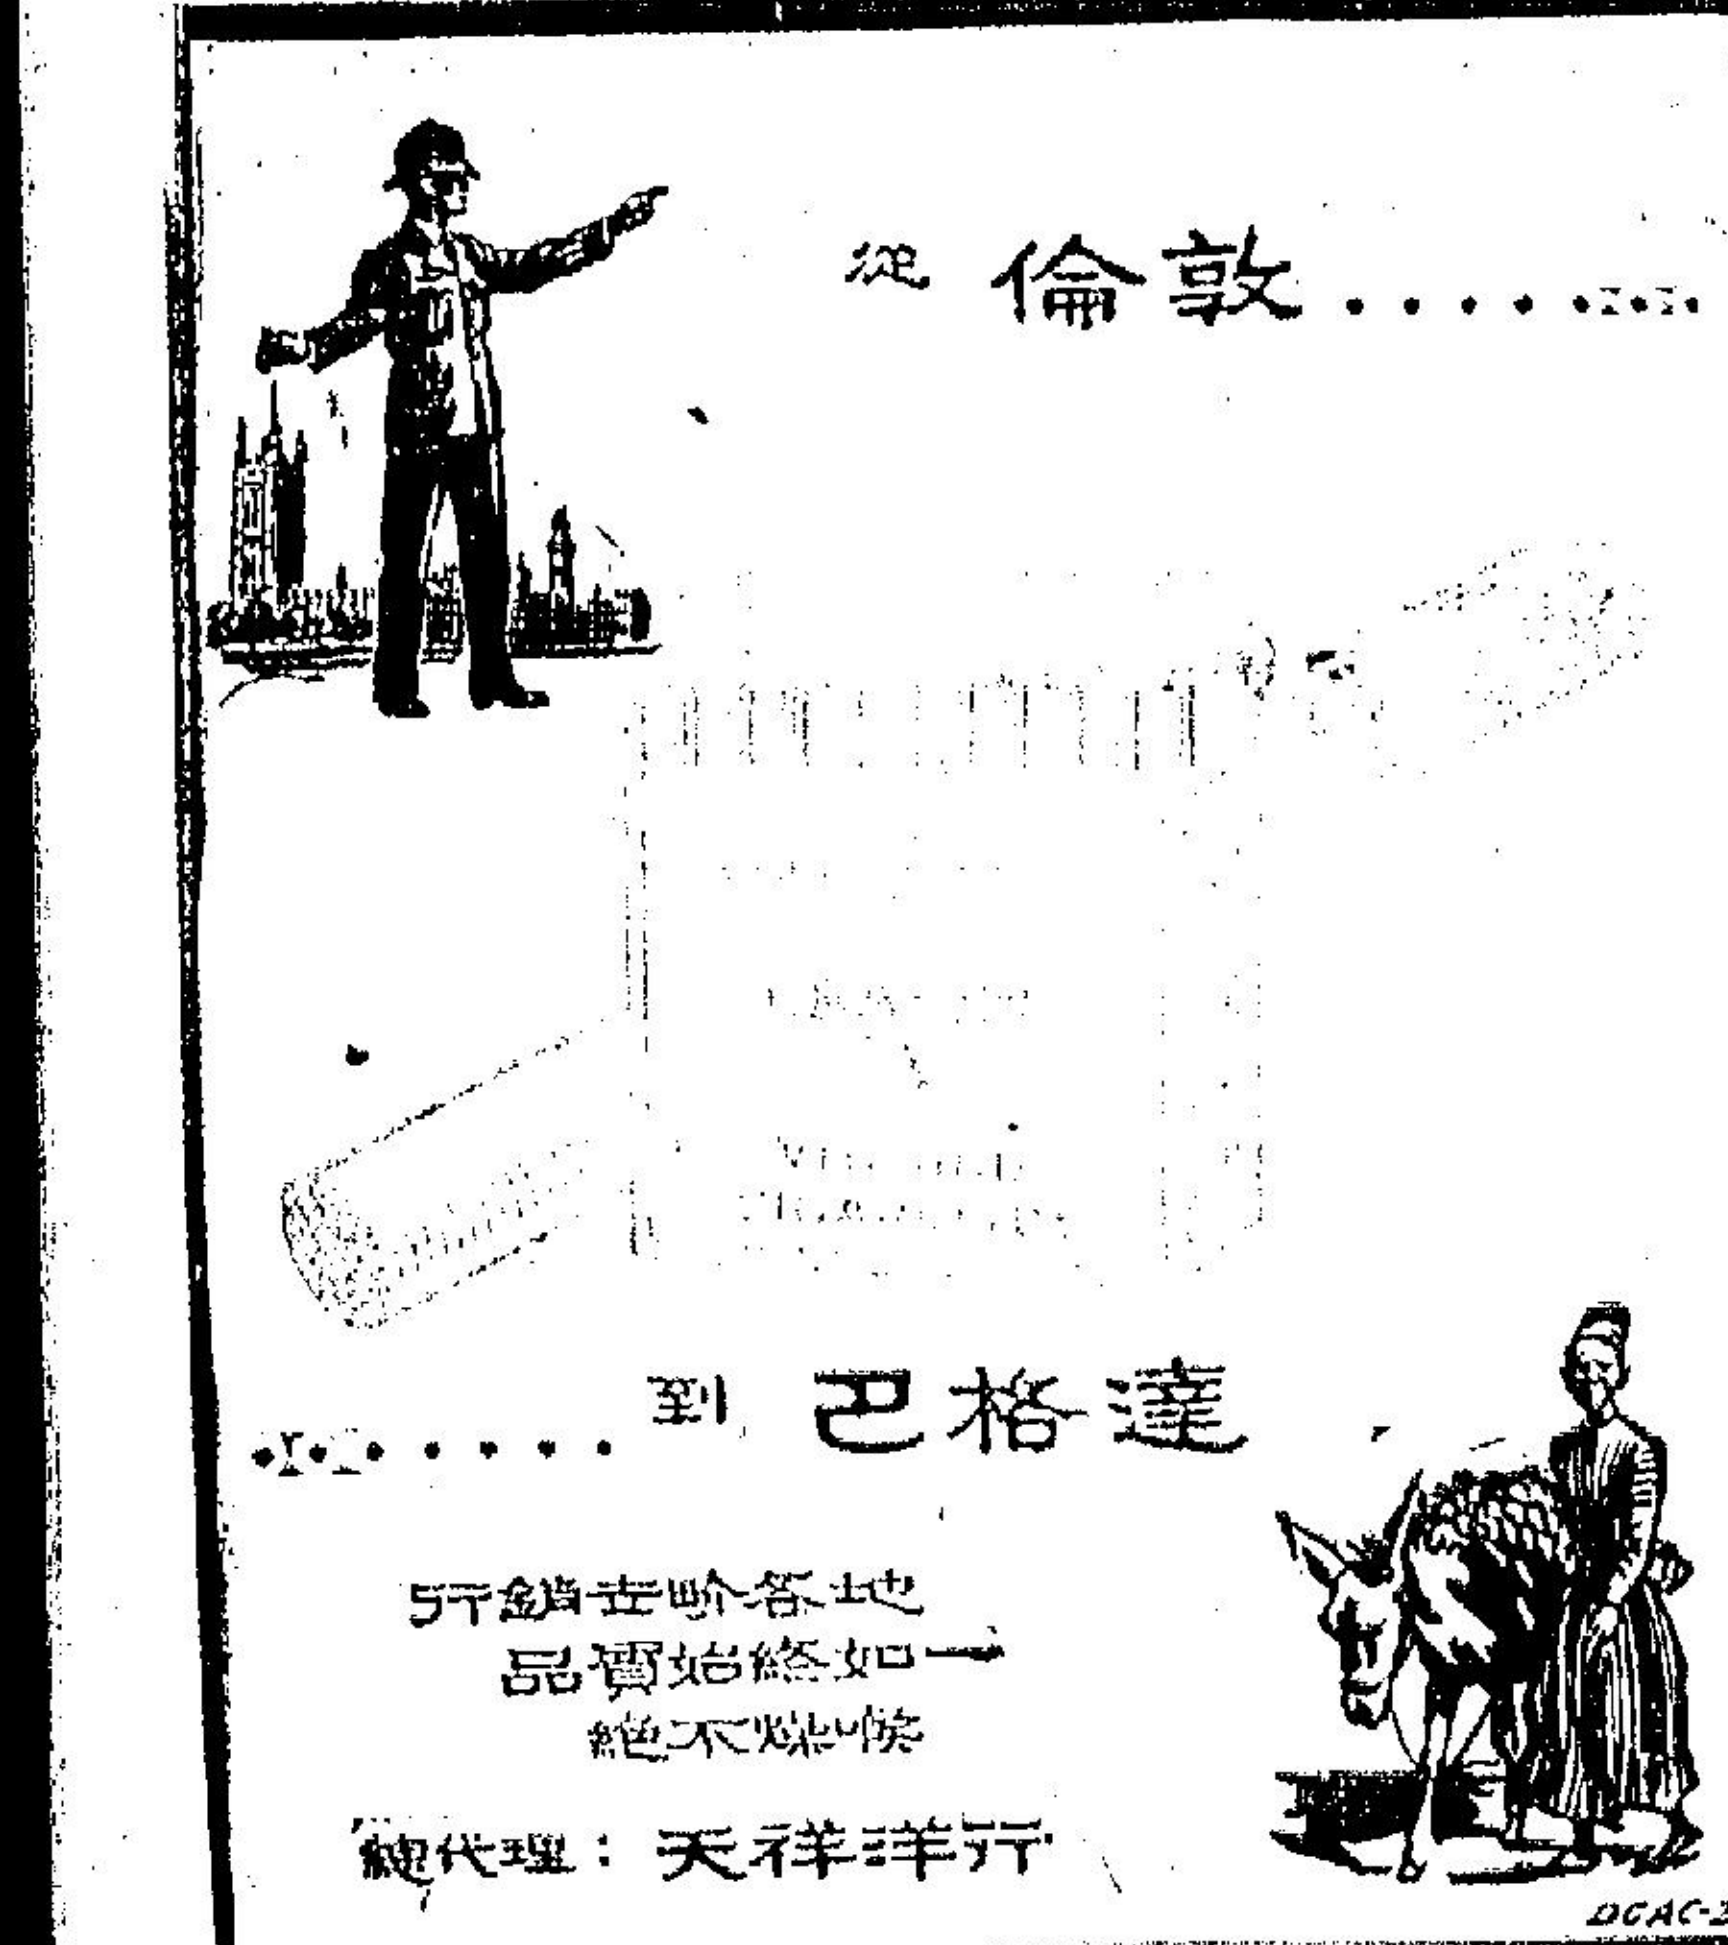 從 倫敦
到 巴格達
行銷世界各地
品質始終如一
絕不燥喉
總代理：天祥洋行